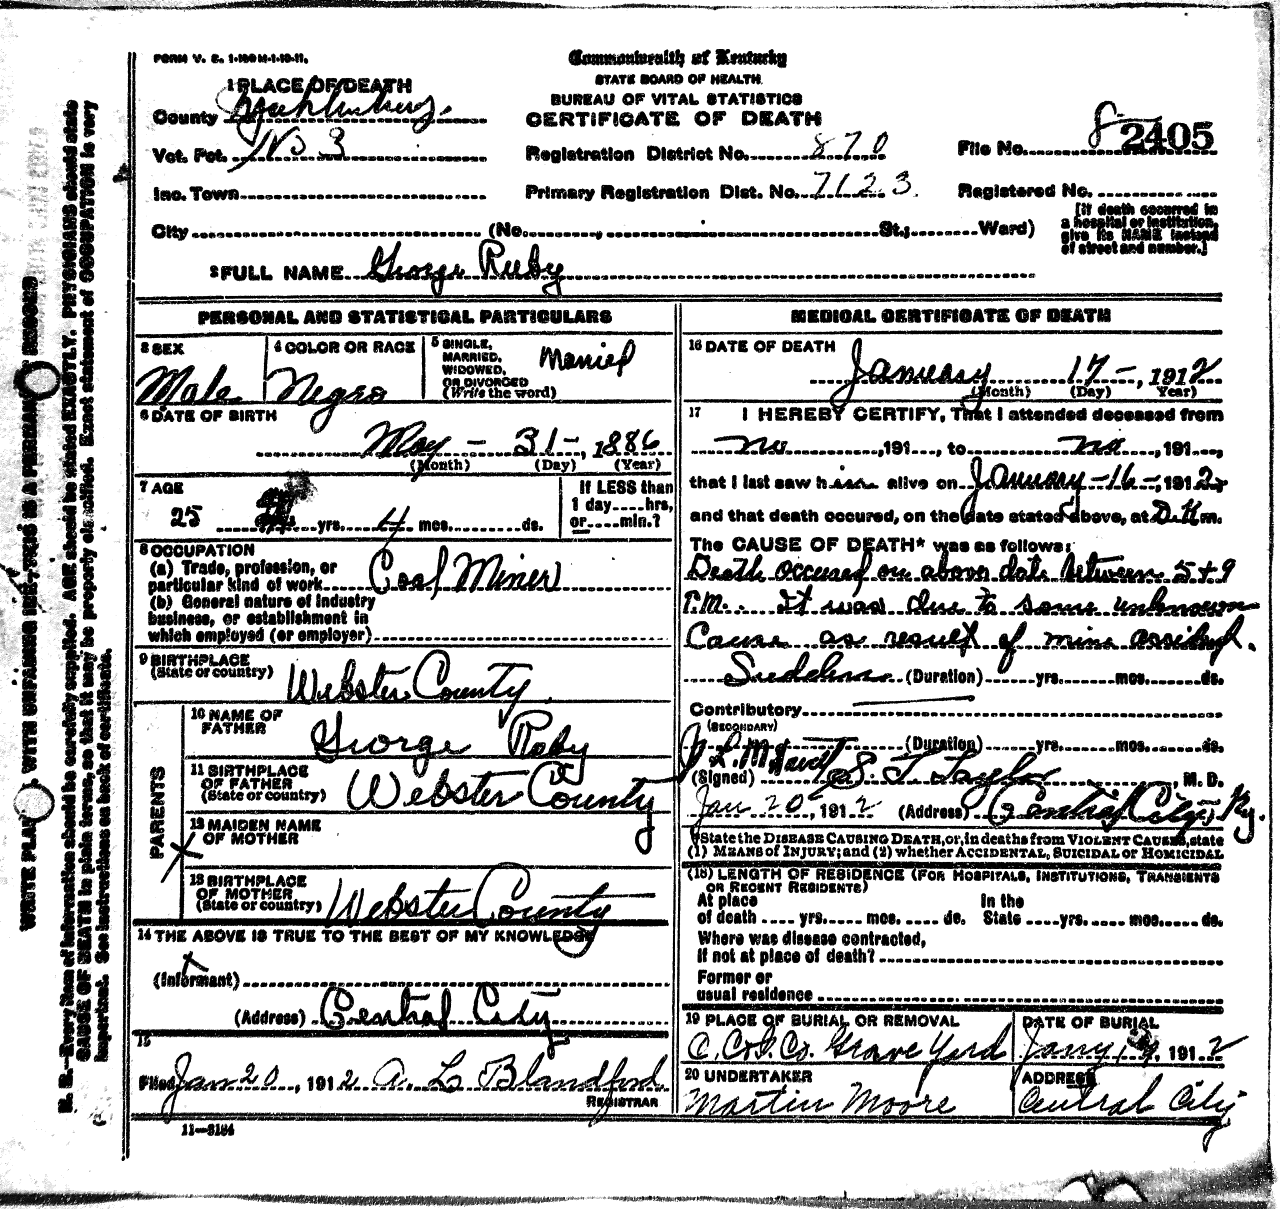 FORM V. S. 1-100M-1-10-11.
Commonwealth of Kentucky
STATE BOARD OF HEALTH.
BUREAU OF VITAL STATISTICS
CERTIFICATE OF DEATH
1 PLACE OF DEATH
County Muhlenberg.
Vot. Pct. No 3
Registration District No. 870
File No. 8 2405
Inc. Town
Primary Registration Dist. No. 7123.
Registered No.
City (No. , St.; Ward)
[If death occurred in
a hospital or institution,
give its NAME instead
of street and number.]
2 FULL NAME George Ruby
PERSONAL AND STATISTICAL PARTICULARS
3 SEX
Male
4 COLOR OR RACE
Negro
5 SINGLE,
MARRIED,
WIDOWED,
OR DIVORCED
(Write the word)
Married
6 DATE OF BIRTH
May - 31 -, 1886
(Month) (Day) (Year)
7 AGE
25 yrs. 4 mos. ds.
If LESS than
1 day hrs,
or min.?
8 OCCUPATION
(a) Trade, profession, or
particular kind of work Coal Miner
(b) General nature of industry
business, or establishment in
which employed (or employer)
9 BIRTHPLACE
(State or country) Webster County
PARENTS
10 NAME OF
FATHER George Ruby
11 BIRTHPLACE
OF FATHER
(State or country) Webster County
12 MAIDEN NAME
OF MOTHER
X
13 BIRTHPLACE
OF MOTHER
(State or country) Webster County
14 THE ABOVE IS TRUE TO THE BEST OF MY KNOWLEDGE
X
(Informant)
(Address) Central City
15
Filed Jan 20, 1912 A. L. Blandford
REGISTRAR
11-3184
MEDICAL CERTIFICATE OF DEATH
16 DATE OF DEATH
January 17 -, 1912
(Month) (Day) (Year)
17 I HEREBY CERTIFY, That I attended deceased from
no ,191 , to no , 191 ,
that I last saw him alive on January -16-, 1912
and that death occured, on the date stated above, at m.
The CAUSE OF DEATH* was as follows:
Death occured on above date between 5 & 9
P.M. It was due to some unknown
Cause as result of mine accident.
(Duration) yrs. mos. ds.
Contributory
(SECONDARY)
(Duration) yrs. mos. ds.
(Signed) S. T. Taylor, M. D.
Jan 20, 1912 (Address) Central City, Ky.
*State the DISEASE CAUSING DEATH, or, in deaths from VIOLENT CAUSES, state
(1) MEANS OF INJURY; and (2) whether ACCIDENTAL, SUICIDAL or HOMICIDAL
(18) LENGTH OF RESIDENCE (FOR HOSPITALS, INSTITUTIONS, TRANSIENTS
OR RECENT RESIDENTS)
At place In the
of death yrs. mos. ds. State yrs. mos. ds.
Where was disease contracted,
if not at place of death?
Former or
usual residence
19 PLACE OF BURIAL OR REMOVAL
Grave Yard
DATE OF BURIAL
Jany , 1912
20 UNDERTAKER
Martin Moore
ADDRESS
Central City
WRITE PLAINLY, WITH UNFADING INK-THIS IS A PERMANENT RECORD
N. B.-Every item of information should be carefully supplied. AGE should be stated EXACTLY. PHYSICIANS should state
CAUSE OF DEATH in plain terms, so that it may be properly classified. Exact statement of OCCUPATION is very
important. See instructions on back of certificate.